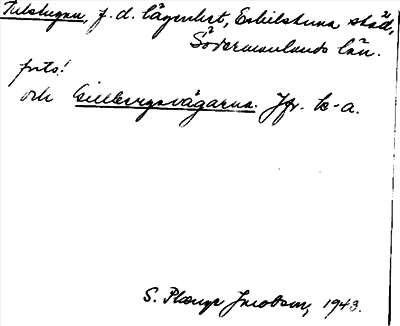 Tulstugan, f.d. lägenhet, Eskilstuna stad,
Södermanlands län.
forts!
och Gillbergavägarna. Jfr. k-a.
S. Plænge Jacobson, 1943.